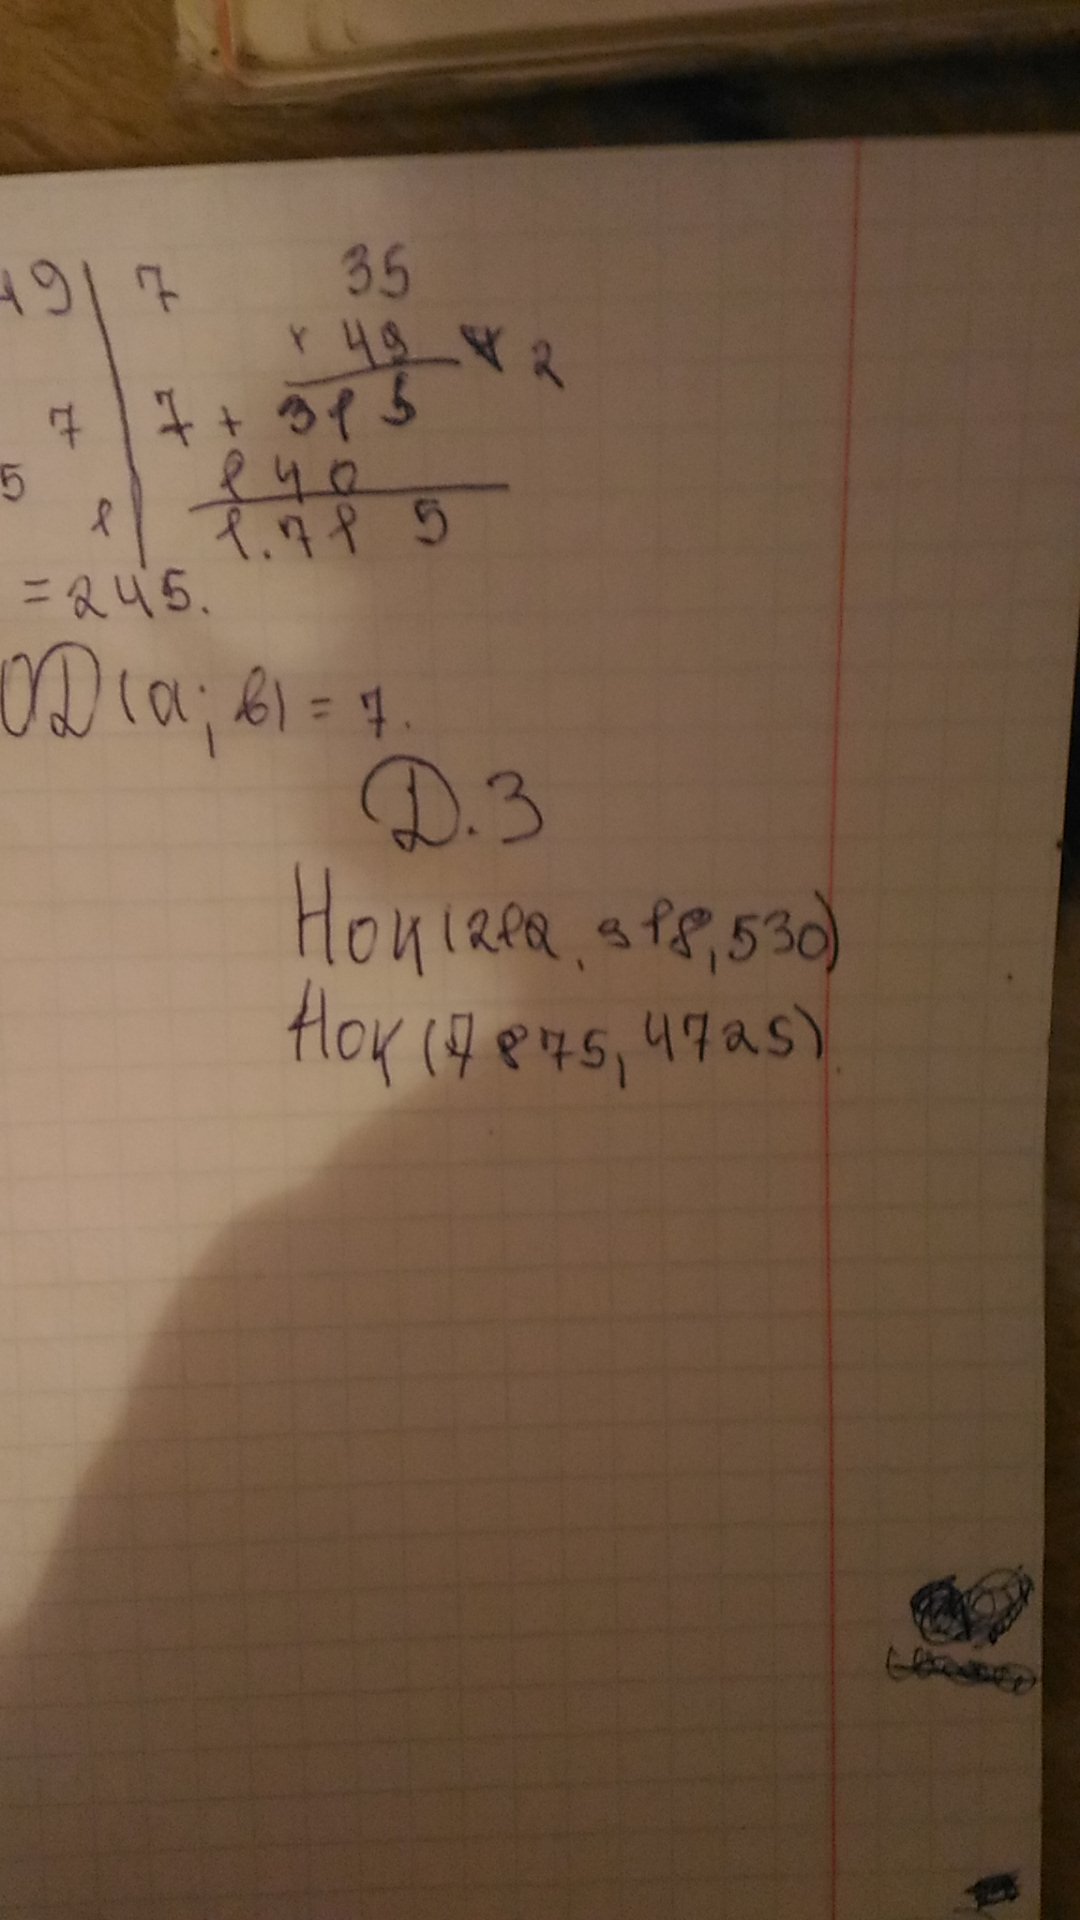 49 7 35
× 49 2
7 7 + 315
5 140
1 1.715
= 245.
ОД (а; в) = 7.
Д.З
Нок (212, 318, 530)
Нок (7875, 4725)